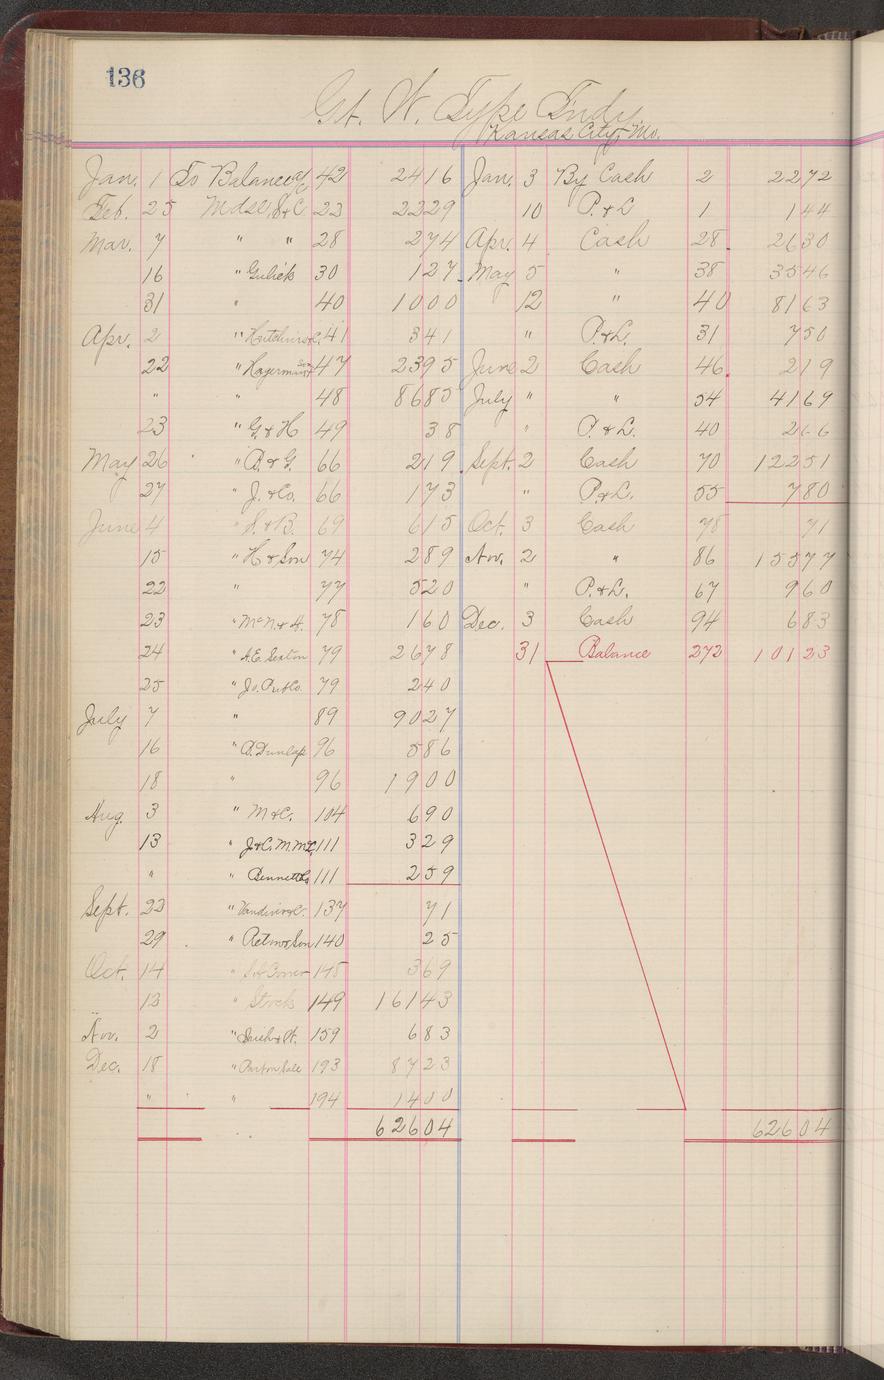 136
Gt. W. Type Fndy.
Kansas City, Mo.
Jan. 1 To Balance 42 2416 Jan. 3 By Cash 2 2272
Feb. 25 Mdse, S&C. 22 2229 10 P.&L 1 144
Mar. 7 " " 28 274 Apr. 4 Cash 28 2630
16 " Gulick 30 127 May 5 " 38 3546
31 " 40 1000 12 " 40 8163
Apr. 2 " 41 341 " P.&L. 31 750
22 " 47 2395 June 2 Cash 46 219
" " 48 8685 July " " 54 4169
23 " G.&H 49 38 " P.&L. 40 266
May 26 " B.&G. 66 219 Sept. 2 Cash 70 12251
27 " J.&Co. 66 173 " P.&L. 55 780
June 4 " S.&B. 69 615 Oct. 3 Cash 78 71
15 " H&Son 74 289 Nov. 2 " 86 15577
22 " 77 520 " P.&L. 67 960
23 " McN.&H. 78 160 Dec. 3 Cash 94 683
24 " A.E. Sexton 79 2678 31 Balance 272 10123
25 " Jo. 79 240
July 7 " 89 9027
16 " Dunlap 96 586
18 " 96 1900
Aug. 3 " M&C. 104 690
13 " 111 329
" " Bennett 111 259
Sept. 22 " 137 71
29 " 140 25
Oct. 14 " 148 369
12 " Stock 149 16143
Nov. 2 " 159 683
Dec. 18 " 193 8723
" " 194 1400
62604 62604